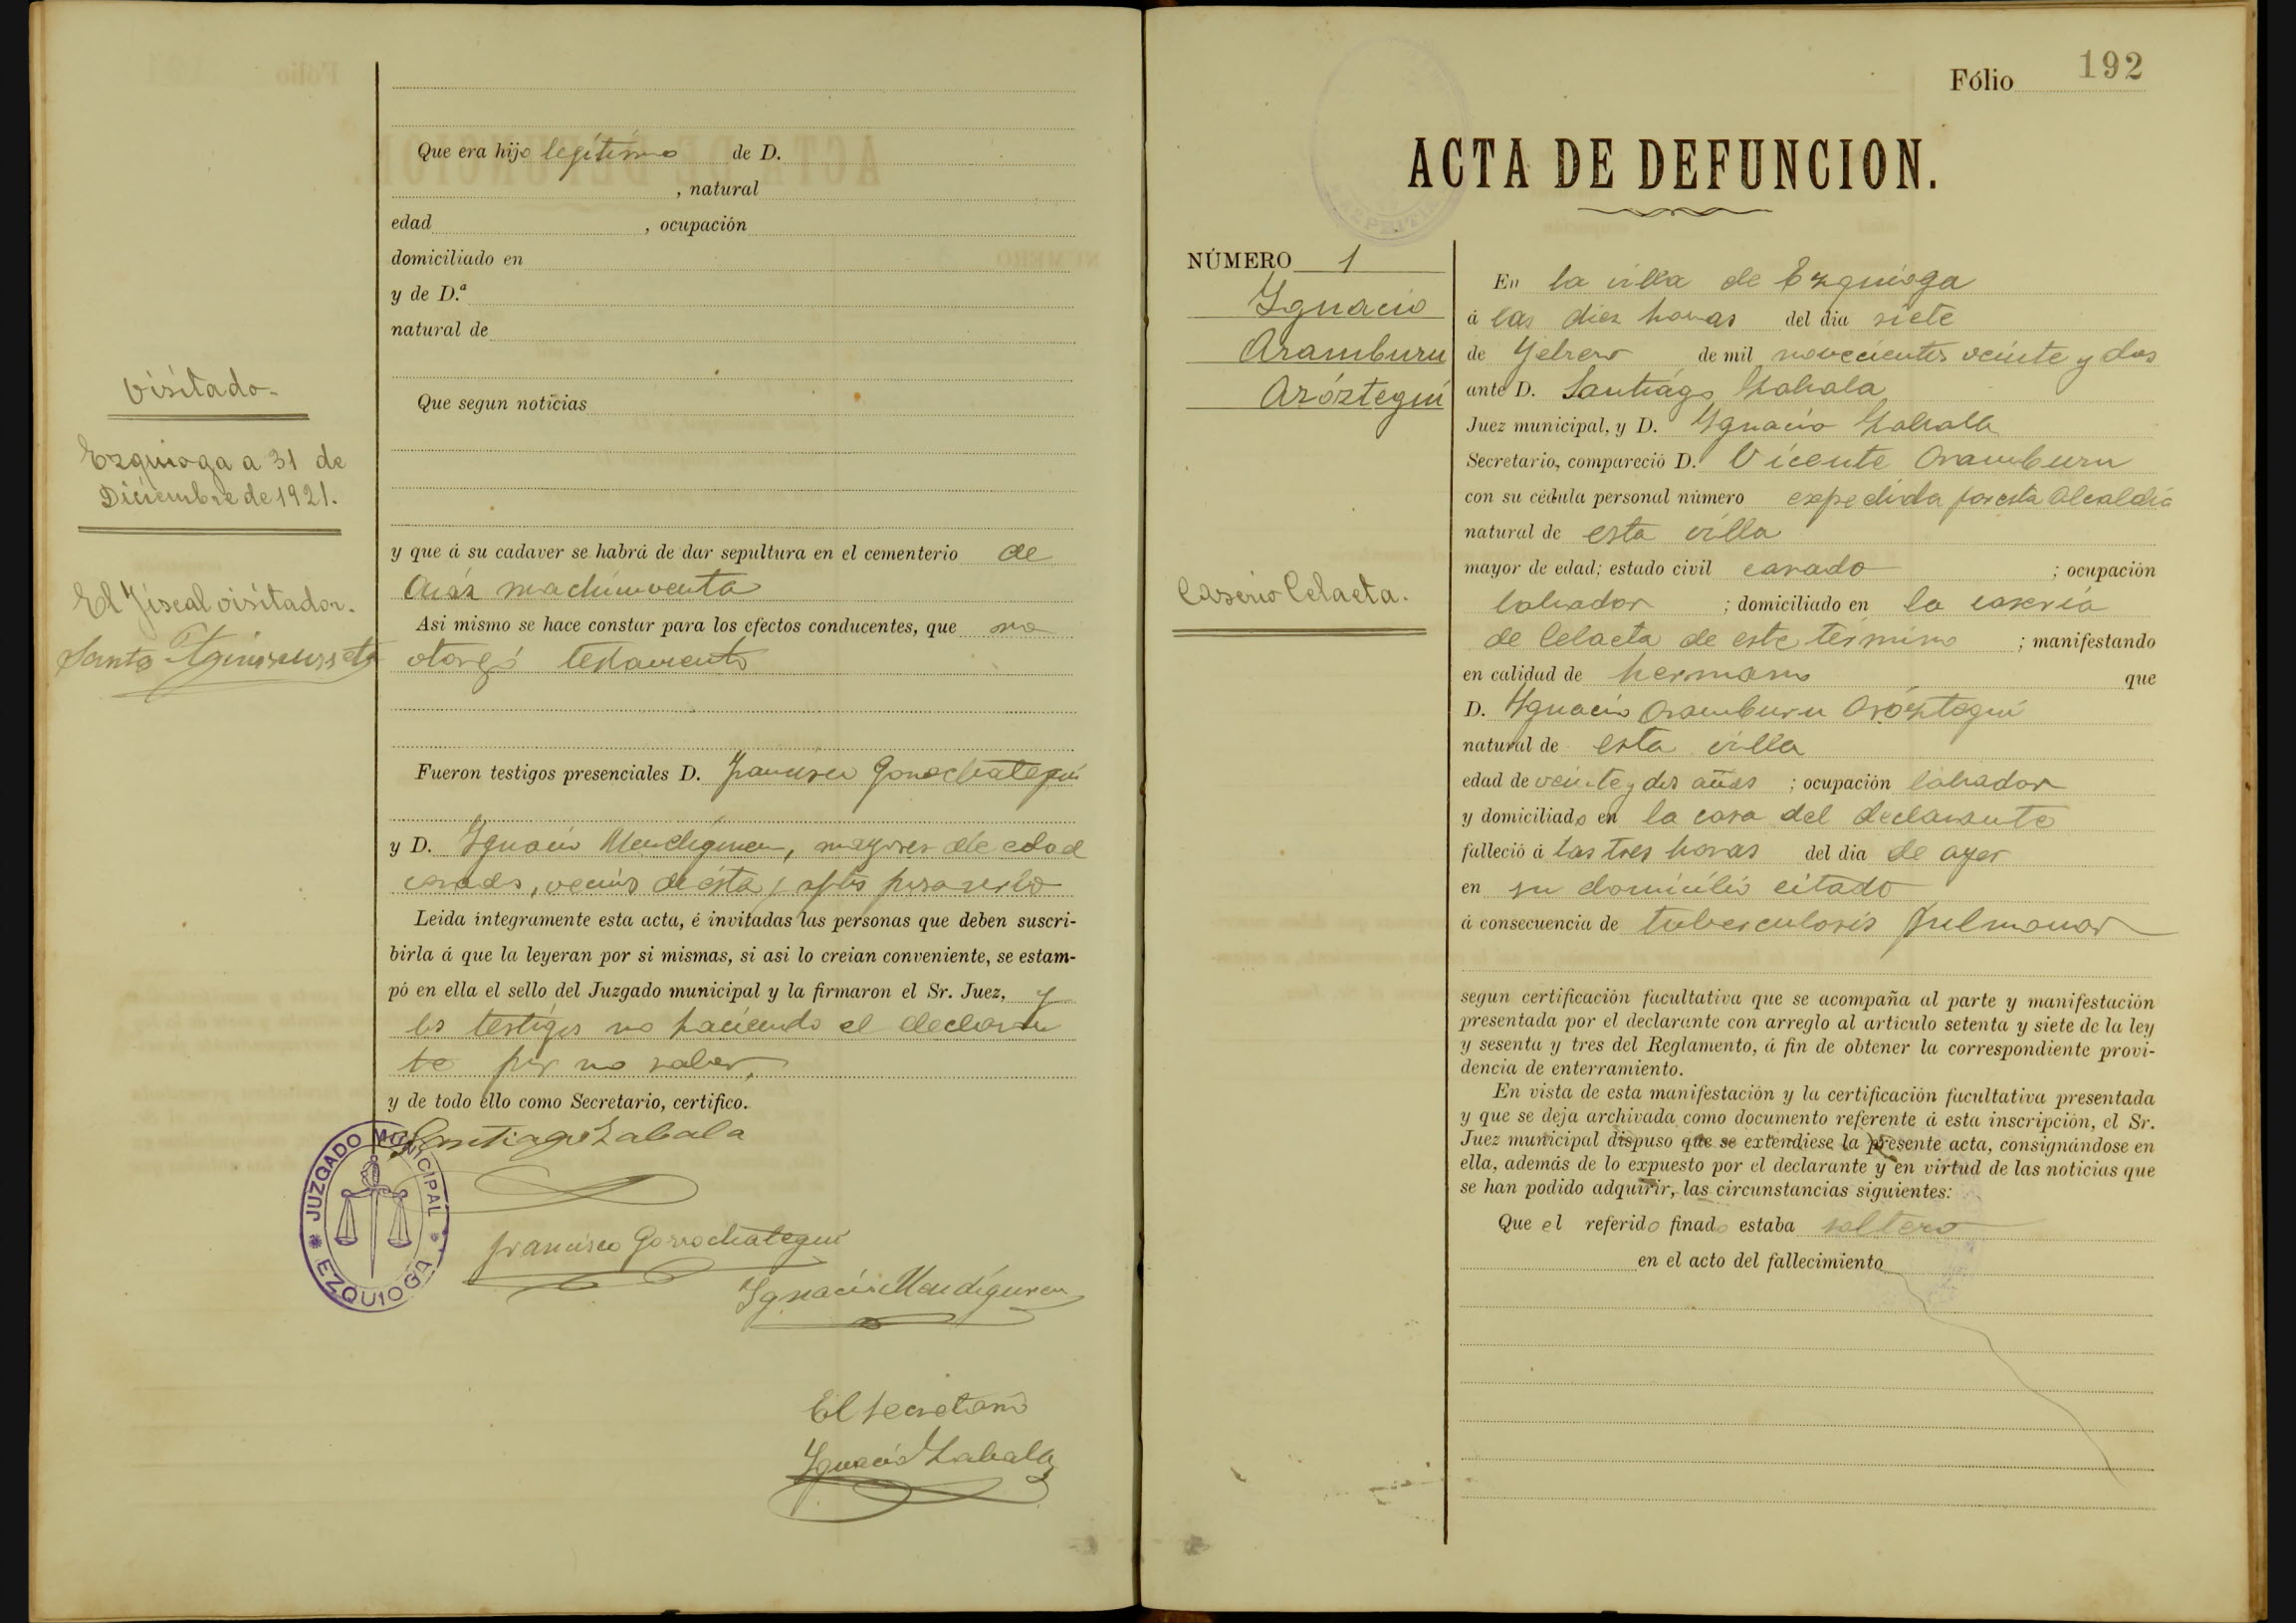 Que era hijo legítimo de D.
, natural
edad , ocupación
domiciliado en
y de D.ª
natural de
Que segun noticias
visitado.
Ezquioga a 31 de
Diciembre de 1921.
El Fiscal visitador.
Santo
y que á su cadaver se habrá de dar sepultura en el cementerio de
machinventa
Asi mismo se hace constar para los efectos conducentes, que no
otorgó testamento
Fueron testigos presenciales D. Francisco Gorrochategui
y D. Ignacio Mendiguren, mayores de edad
casados, vecinos de ésta y aptos para serlo
Leida íntegramente esta acta, é invitadas las personas que deben suscri-
birla á que la leyeran por si mismas, si asi lo creian conveniente, se estam-
pó en ella el sello del Juzgado municipal y la firmaron el Sr. Juez, y
los testigos no haciendo el declaran
te por no saber.
y de todo ello como Secretario, certifico.
Santiago Zabala
JUZGADO MUNICIPAL
EZQUIOGA
Francisco Gorrochategui
Ignacio Mendiguren
El secretario
Ignacio Zabala
Fólio 192
ACTA DE DEFUNCION.
NÚMERO 1
Ignacio
Aramburu
Aróztegui
Caserio Celaeta.
En la villa de Ezquioga
á las diez horas del dia siete
de Febrero de mil novecientos veinte y dos
ante D. Santiago Zabala
Juez municipal, y D. Ignacio Zabala
Secretario, compareció D. Vicente Aramburu
con su cédula personal número expedida por esta Alcaldia
natural de esta villa
mayor de edad; estado civil casado ; ocupación
labrador ; domiciliado en la caseria
de Celaeta de este término ; manifestando
en calidad de hermano que
D. Ignacio Aramburu Aróztegui
natural de esta villa
edad de veinte y dos años ; ocupación labrador
y domiciliado en la casa del declarante
falleció á las tres horas del dia de ayer
en su domicilio citado
á consecuencia de tuberculosis pulmonar
segun certificación facultativa que se acompaña al parte y manifestación
presentada por el declarante con arreglo al articulo setenta y siete de la ley
y sesenta y tres del Reglamento, á fin de obtener la correspondiente provi-
dencia de enterramiento.
En vista de esta manifestación y la certificación facultativa presentada
y que se deja archivada como documento referente á esta inscripción, el Sr.
Juez municipal dispuso que se extendiese la presente acta, consignándose en
ella, además de lo expuesto por el declarante y en virtud de las noticias que
se han podido adquirir, las circunstancias siguientes:
Que el referido finado estaba soltero
en el acto del fallecimiento